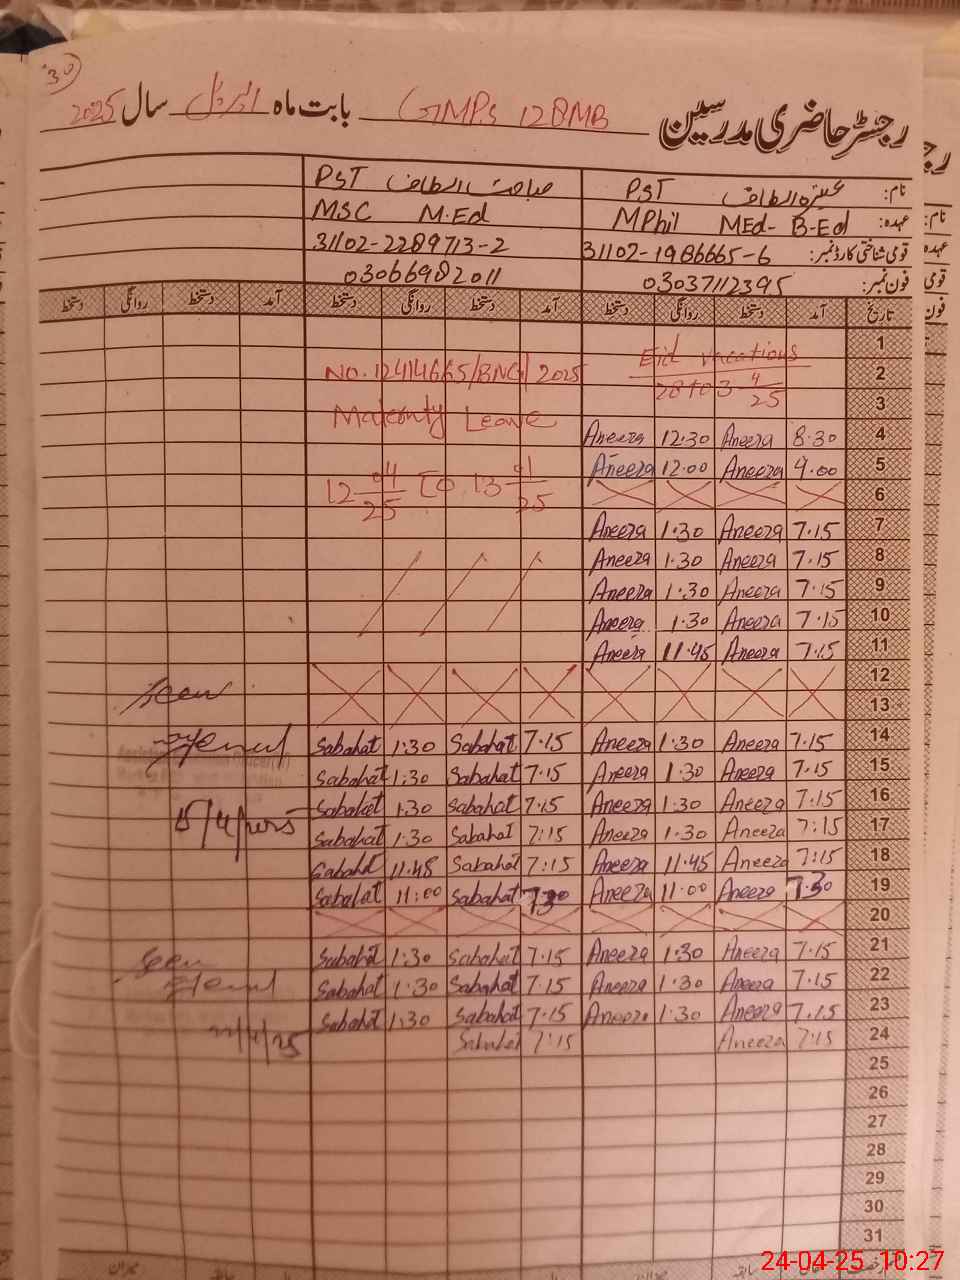 30
رجسٹر حاضری مدرسین GMPS 128MB بابت ماہ اپریل سال 2025
نام: عنیزہ الطاف PST صباحت الطاف PST
عہدہ: MPhil MEd- B-Ed MSC M.Ed
قومی شناختی کارڈ نمبر: 31102-1986665-6 31102-2289713-2
فون نمبر: 03037112395 03066982011
تاریخ آمد دستخط روانگی دستخط آمد دستخط روانگی دستخط آمد دستخط روانگی دستخط
1
2 Eid vacations NO.12414665/BNG/2025
3 28 to 3 4/25
Maternty Leave
4 8.30 Aneeza 12.30 Aneeza
5 9.00 Aneeza 12.00 Aneeza
12 04/25 to 13 04/25
6
7 7.15 Aneeza 1.30 Aneeza
8 7.15 Aneeza 1.30 Aneeza
9 7.15 Aneeza 1.30 Aneeza
10 7.15 Aneeza 1.30 Aneeza
11 7.15 Aneeza 11.45 Aneeza
12
13
Seen
14 7.15 Aneeza 1.30 Aneeza 7.15 Sabahat 1.30 Sabahat
15 7.15 Aneeza 1.30 Aneeza 7.15 Sabahat 1.30 Sabahat
16 7.15 Aneeza 1.30 Aneeza 7.15 Sabahat 1.30 Sabahat
15/4/2025
17 7:15 Aneeza 1.30 Aneeza 7:15 Sabahat 1.30 Sabahat
18 7:15 Aneeza 11.45 Aneeza 7:15 Sabahat 11.45 Sabahat
19 7.30 Aneeza 11.00 Aneeza 7.30 Sabahat 11:00 Sabahat
20
21 7.15 Aneeza 1.30 Aneeza 7.15 Sabahat 1.30 Sabahat
Seen
22 7.15 Aneeza 1.30 Aneeza 7.15 Sabahat 1.30 Sabahat
23 7.15 Aneeza 1.30 Aneeza 7.15 Sabahat 1.30 Sabahat
24 7:15 Aneeza 7:15 Sabahat
22/4/25
25
26
27
28
29
30
31
24-04-25 10:27